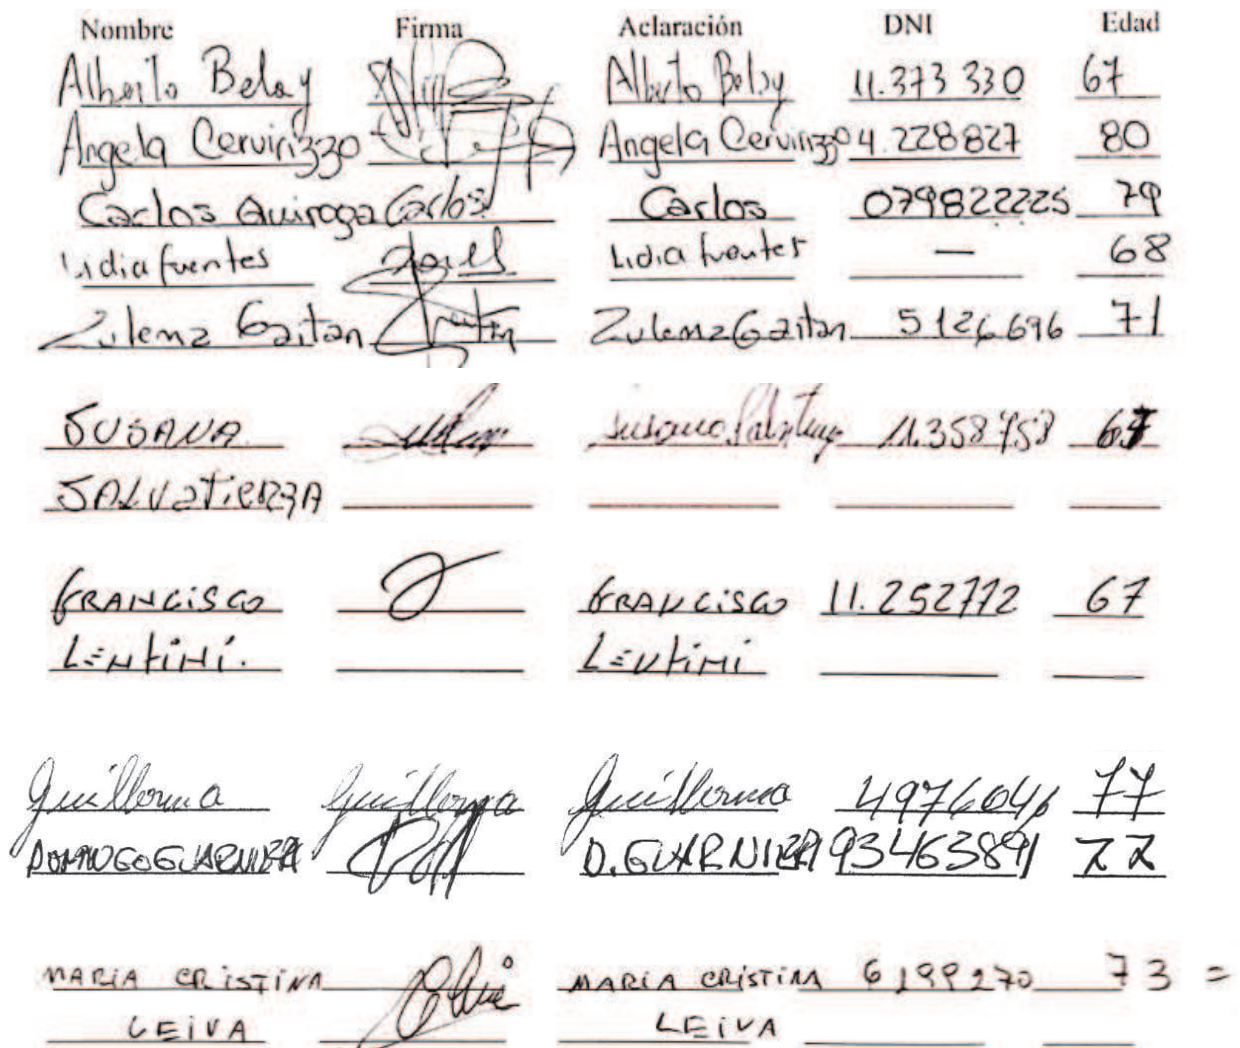 Nombre Firma Aclaración DNI Edad
Alberto Beloy Alberto Beloy 11.373 330 67
Angela Cervirizzo Angela Cervirizzo 4.228827 80
Carlos Quiroga Carlos Carlos 079822225 79
Lidia fuentes Lidia fuentes — 68
Zulema Gaitan Zulema Gaitan 5126696 71
SUSANA Susana 11.358758 67
SALVATIERRA
FRANCISCO FRANCISCO 11.252772 67
LENTINI. LENTINI
Guillerma Guillerma Guillerma 4976046 77
DOMINGO GUARNIERI D. GUARNIERI 93463891 77
MARIA CRISTINA MARIA CRISTINA 6199270 73 =
LEIVA LEIVA